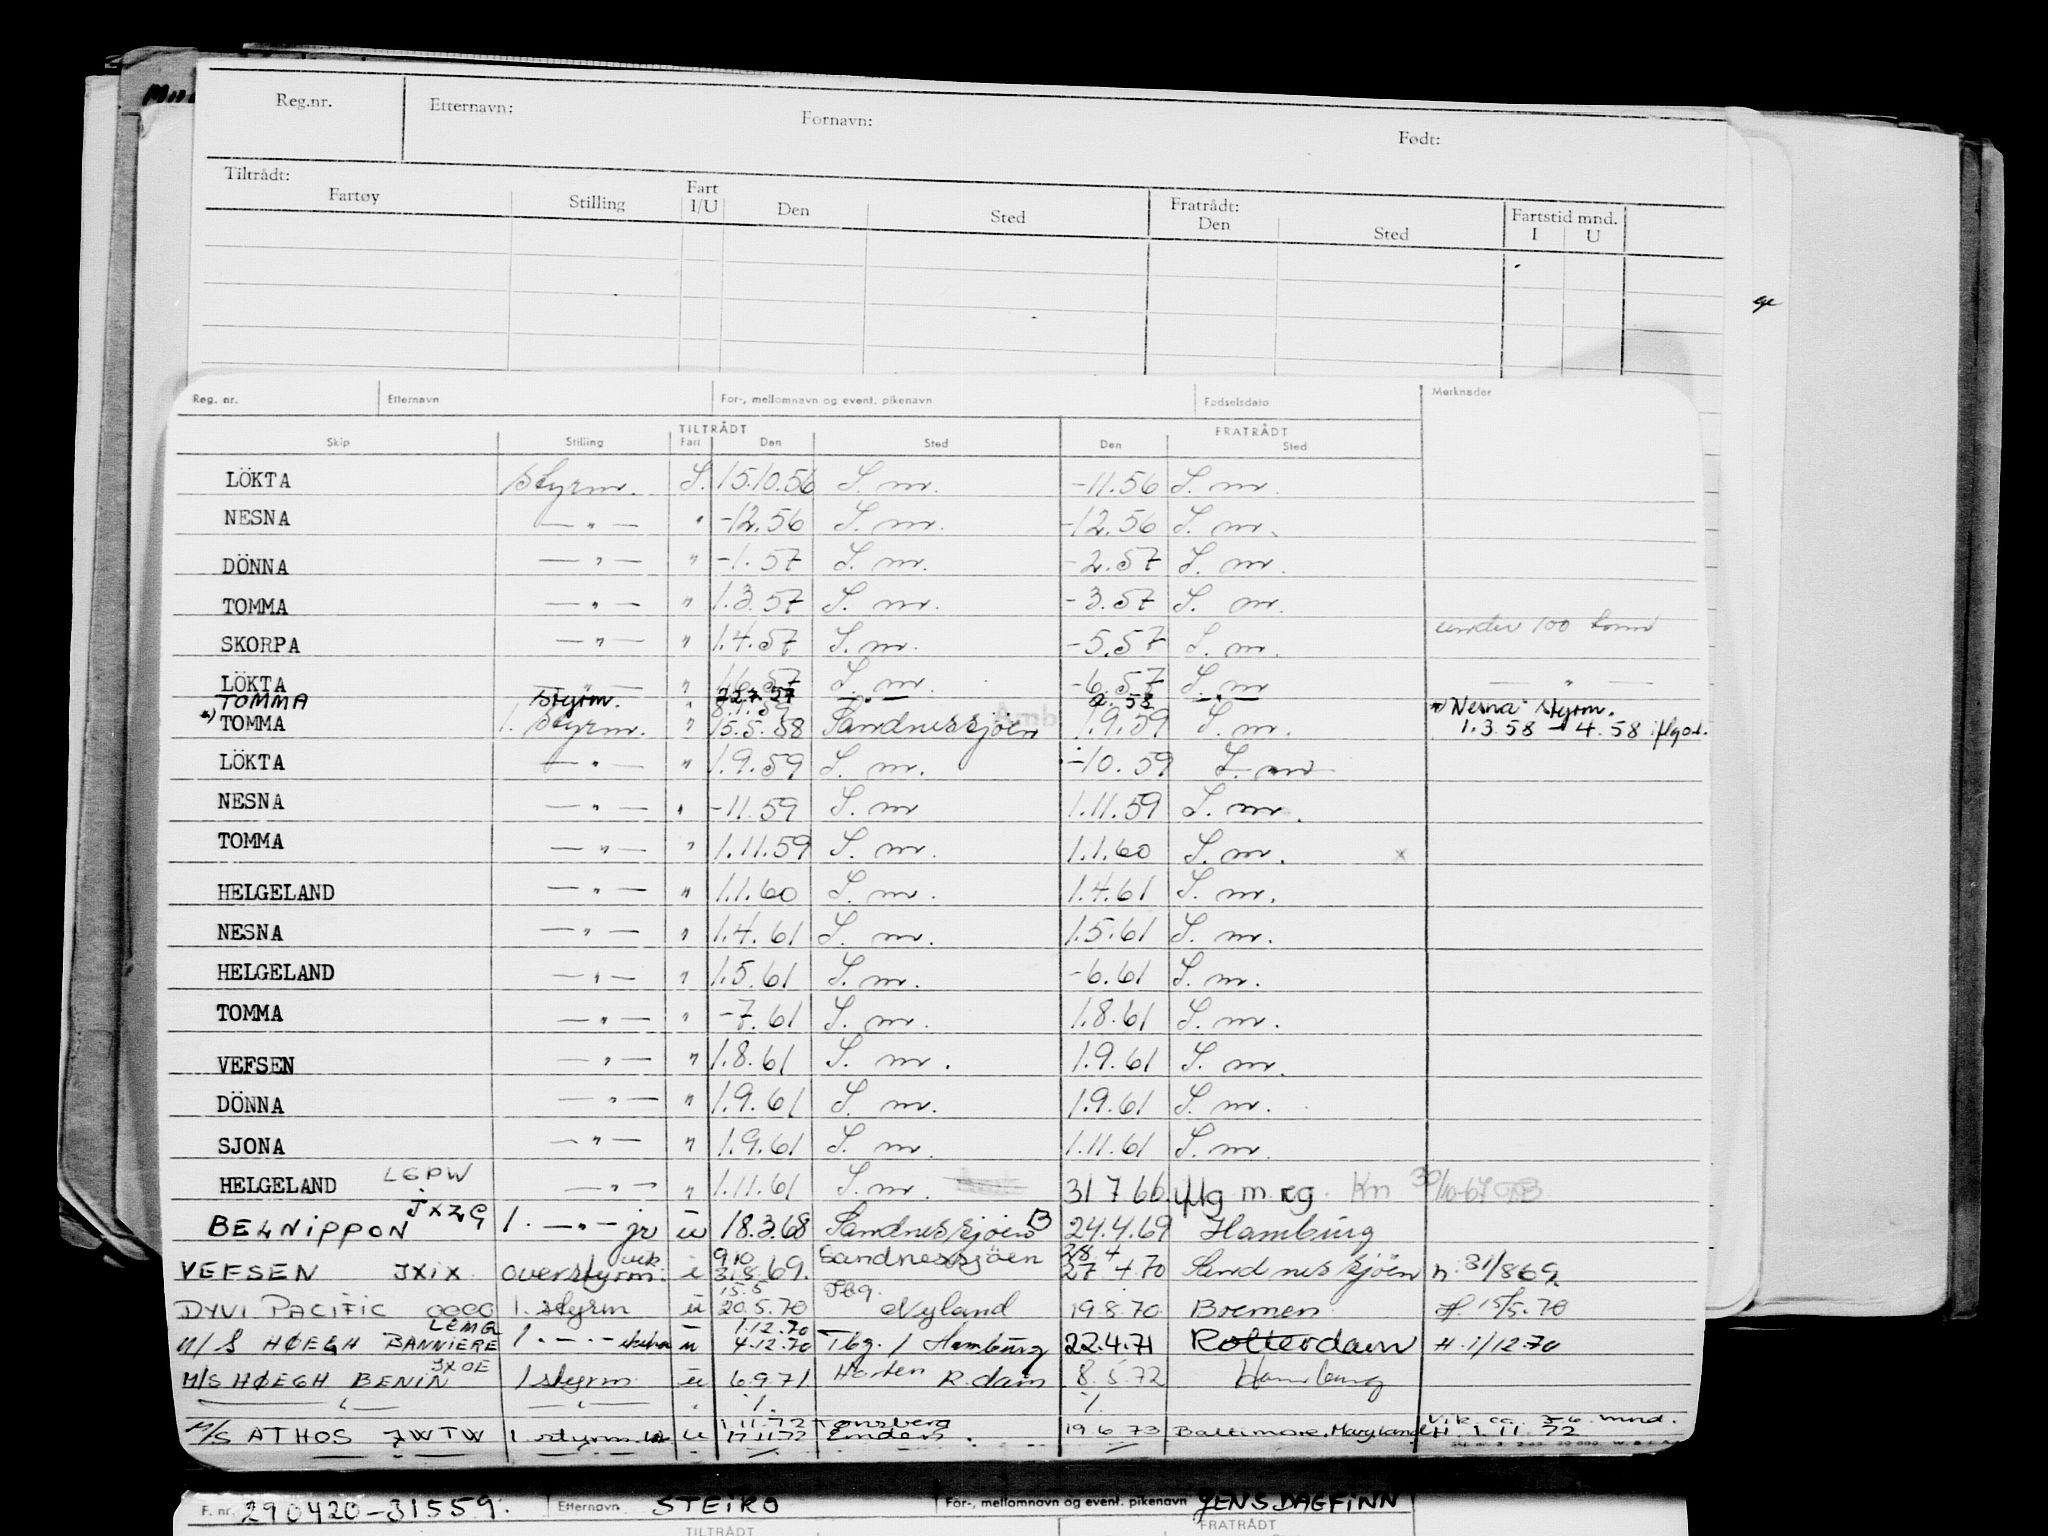 Reg.nr. Etternavn: Fornavn: Født:
Tiltrådt: Fratrådt:
Fartøy Stilling Fart I/U Den Sted Den Sted Fartstid mnd. I U
Reg. nr. Etternavn For-, mellomnavn og event. pikenavn Fødselsdato Merknader
TILTRÅDT FRATRÅDT
Skip Stilling Fart Den Sted Den Sted
LÖKTA Styrm. S. 15.10.56 S. m. -11.56 S. m.
NESNA — " — " -12.56 S. m. -12.56 S. m.
DÖNNA — " — " -1.57 S. m. -2.57 S. m.
TOMMA — " — " 1.3.57 S. m. -3.57 S. m.
SKORPA — " — " 1.4.57 S. m. -5.57 S. m. under 100 tonn
LÖKTA — " — " 1.6.57 S. m. -6.57 S. m — " —
TOMMA Styrm. " 22.7.57 — " — 2.58 — " — *) "Nesna" styrm.
*) TOMMA 1. Styrm. " 15.5.58 Sandnessjøen 1.9.59 S. m. 1.3.58 - 4.58 iflg od.
LÖKTA — " — " 1.9.59 S. m. -10.59 S. m
NESNA — " — " -11.59 S. m 1.11.59 S. m.
TOMMA — " — " 1.11.59 S. m. 1.1.60 S. m. x
HELGELAND — " — " 1.1.60 S. m. 1.4.61 S. m.
NESNA — " — " 1.4.61 S. m. 1.5.61 S. m.
HELGELAND — " — " 1.5.61 S. m. -6.61 S. m.
TOMMA — " — " -7.61 S. m. 1.8.61 S. m.
VEFSEN — " — " 1.8.61 S. m. 1.9.61 S. m.
DÖNNA — " — " 1.9.61 S. m. 1.9.61 S. m.
SJONA — " — " 1.9.61 S. m. 1.11.61 S. m.
HELGELAND LGPW — " — " 1.11.61 S. m. 31 7 66 iflg m. rg. Kn 30/10-67
BELNIPPON JXZG 1. — " — jr u 18.3.68 Sandnessjøen B 24.4.69 Hamburg
VEFSEN JXIX overstyrm. vik i 9 10 31.8.69. Sandnessjöen 28 4 27 4.70 Sandnessjöen n. 31/8 69.
15.5 Tbg.
DYVI PACIFIC 1. styrm u 20.5.70 Nyland 19.8.70 Bremen H. 15/5.70
LEMG 1.12.70
M/S HØEGH BANNIERE 1. — " — u 4.12.70 Tbg. / Hamburg 22.4.71 Rotterdam H. 1/12.70
JXOE
M/S HØEGH BENIN 1 styrm u 6.9.71 Horten R.dam 8.5.72 Hamburg
— " — — " — " %. %.
1.11.72 Tønsberg Vik ca 5-6 mnd.
M/S ATHOS JWTW 1 styrm. u 17.11.72 Emden. 19.6.73 Baltimore, Maryland H 1.11.72
F. nr. 290420-31559. Etternavn STEIRO For-, mellomnavn og event. pikenavn JENS DAGFINN
TILTRÅDT FRATRÅDT